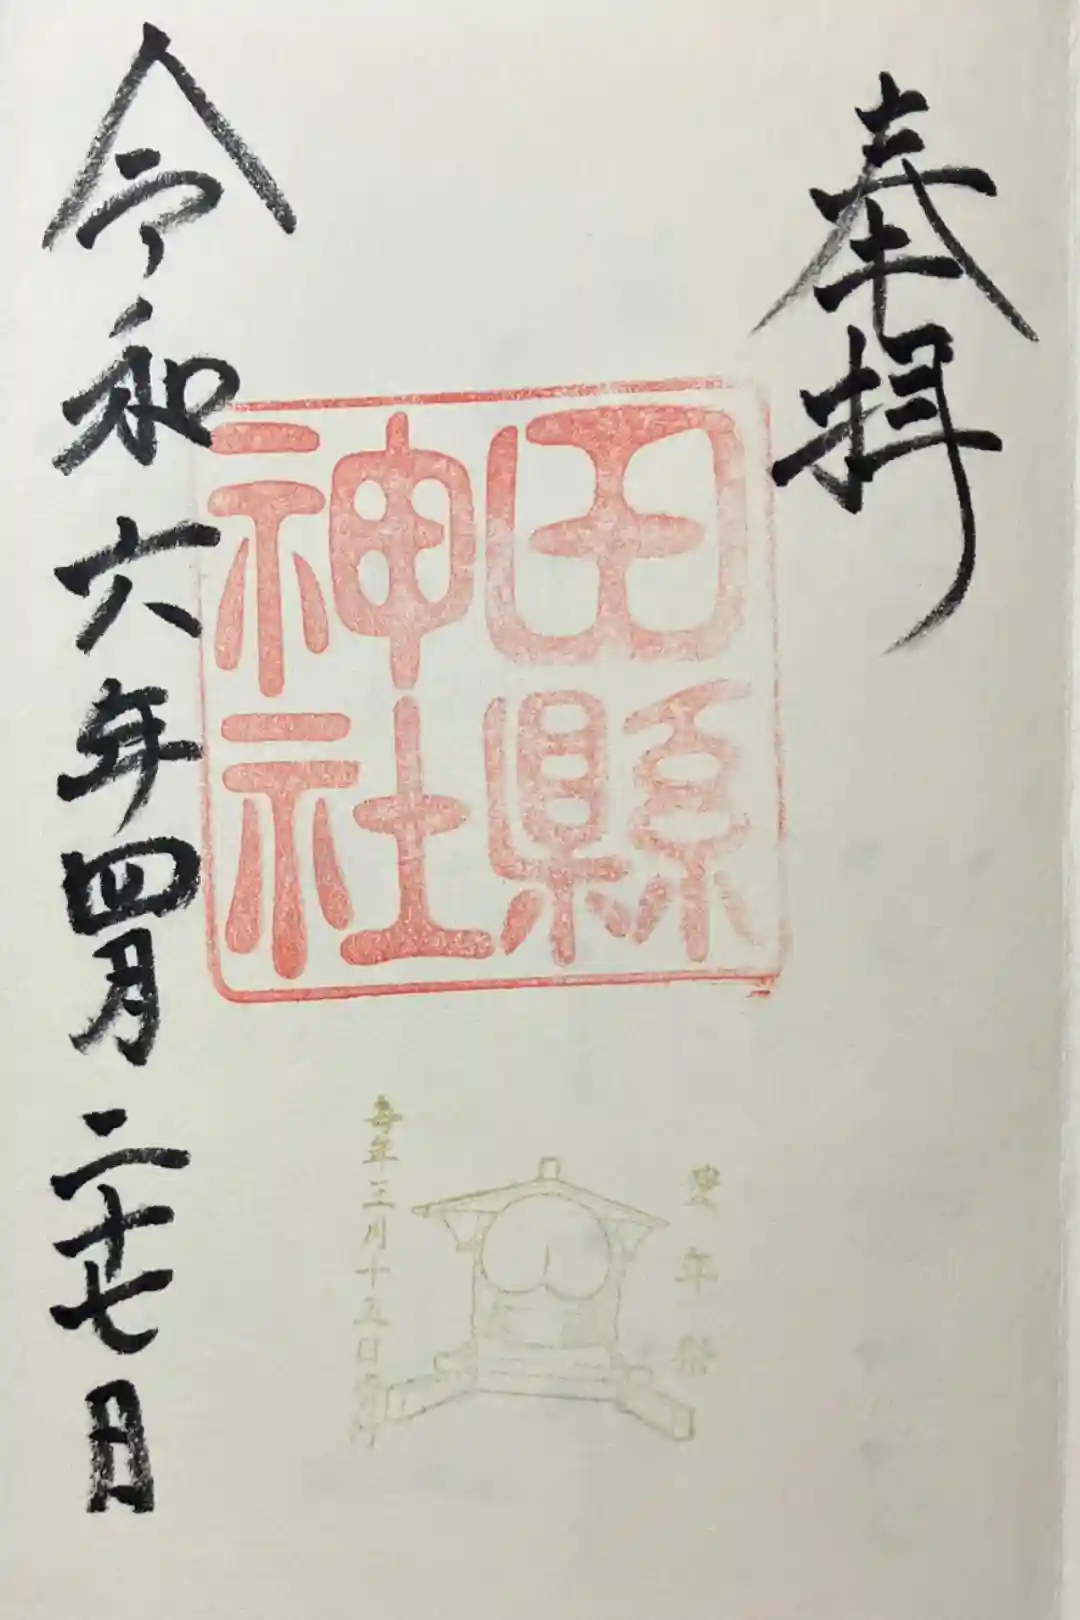 奉拝
田縣
神社
豊年祭
毎年三月十五日斎行
令和六年四月二十七日